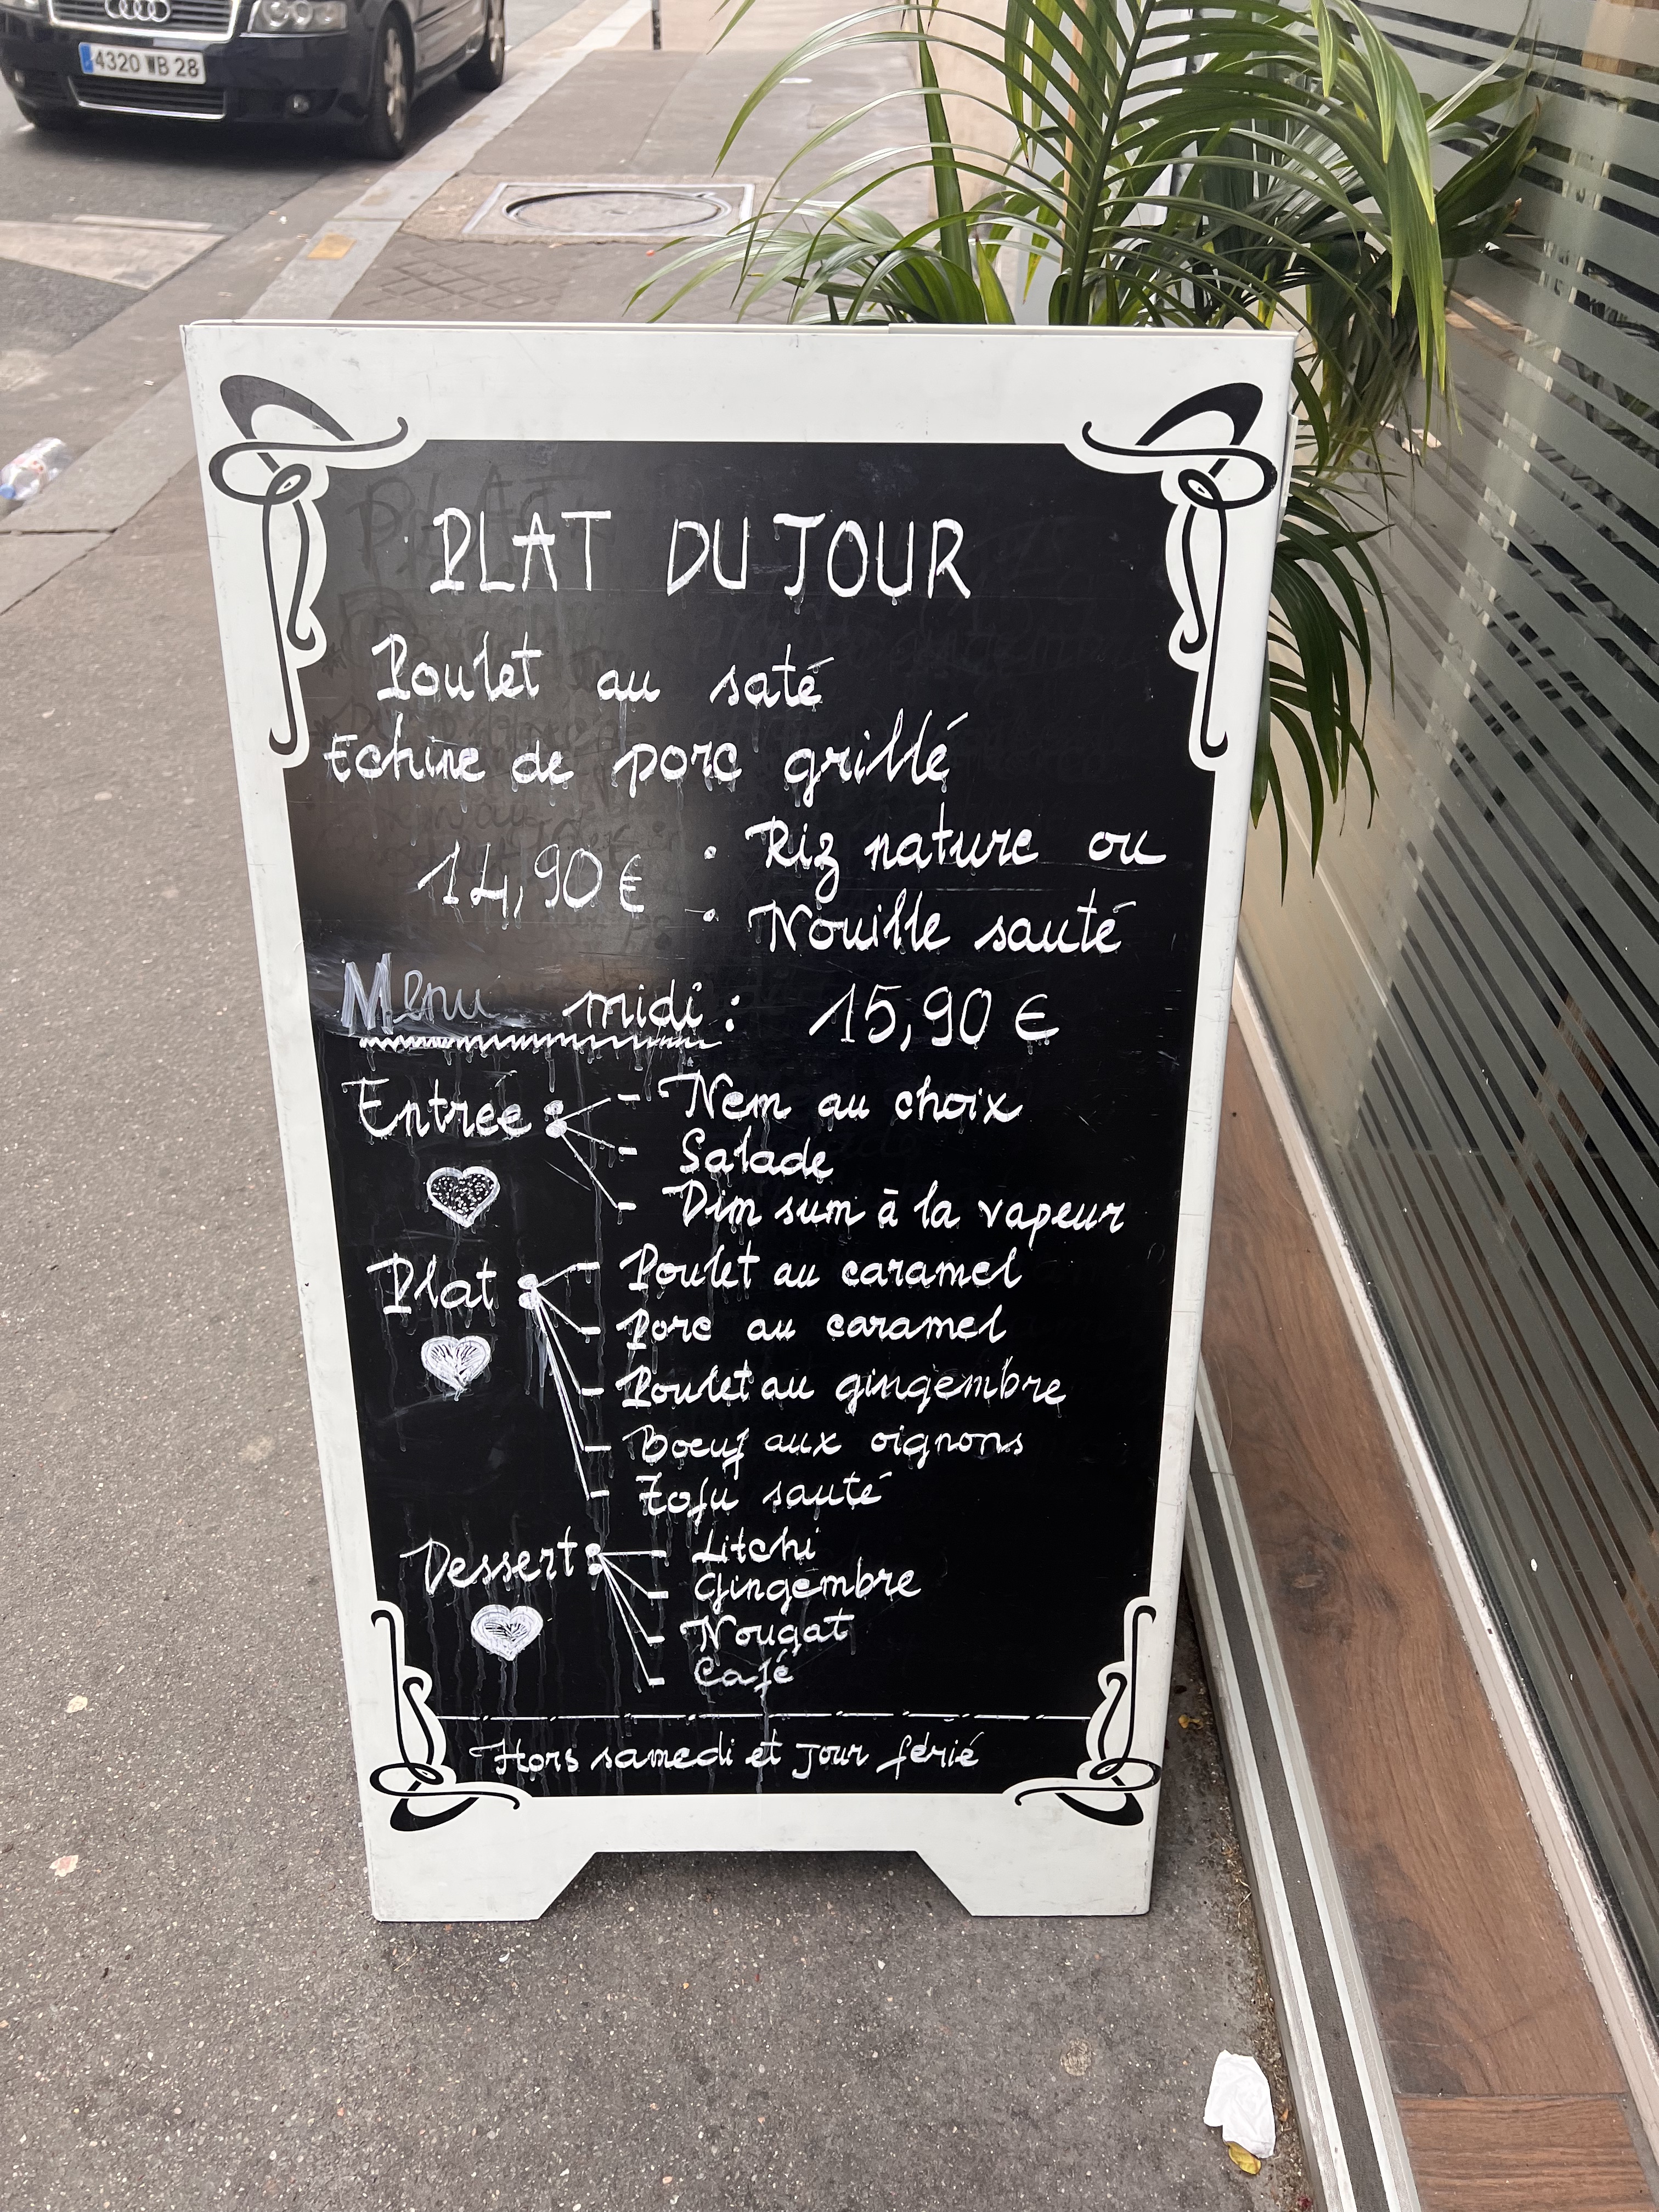 4320 WB 28
PLAT DU JOUR
Poulet au saté
Echine de porc grillé
14,90 €
• Riz nature ou
• Nouille sauté
Menu midi : 15,90 €
Entrée :
- Nem au choix
- Salade
- Dim sum à la vapeur
Plat :
- Poulet au caramel
- Porc au caramel
- Poulet au gingembre
- Boeuf aux oignons
- Tofu sauté
Dessert :
- Litchi
- Gingembre
- Nougat
- Café
Hors samedi et jour férié